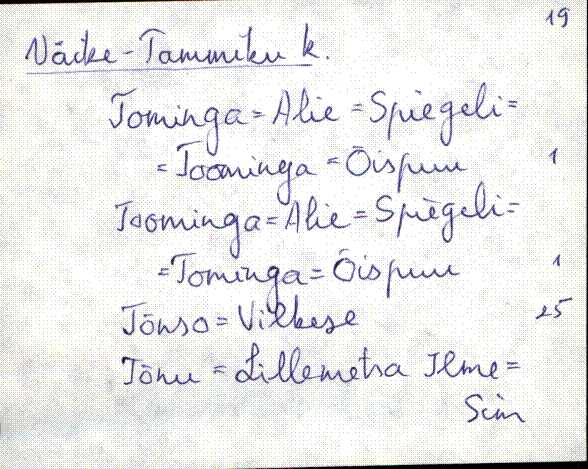 19
Väike-Tammiku k.
Tominga = Alie = Spiegeli =
= Toominga = Õispuu 1
Toominga = Alie = Spiegeli =
= Tominga = Õispuu 1
Tõnso = Vilkese 25
Tõnu = Lillemetsa Ilme =